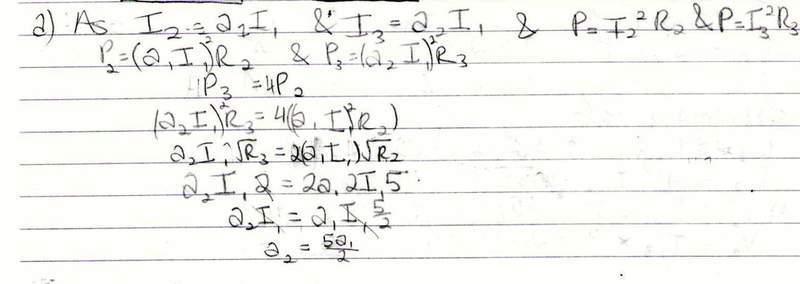 a) As I₂ = a₁I₁ & I₃ = a₂I₁ & P = I₂²R₂ & P = I₃²R₃
P₂ = (a₁I₁)²R₂ & P₃ = (a₂I₁)²R₃
P₃ = 4P₂
(a₂I₁)²R₃ = 4((a₁I₁)²R₂)
a₂I₁√R₃ = 2(a₁I₁)√R₂
a₂I₁2 = 2a₁2I₁5
a₂I₁ = a₁I₁5/2
a₂ = 5a₁/2